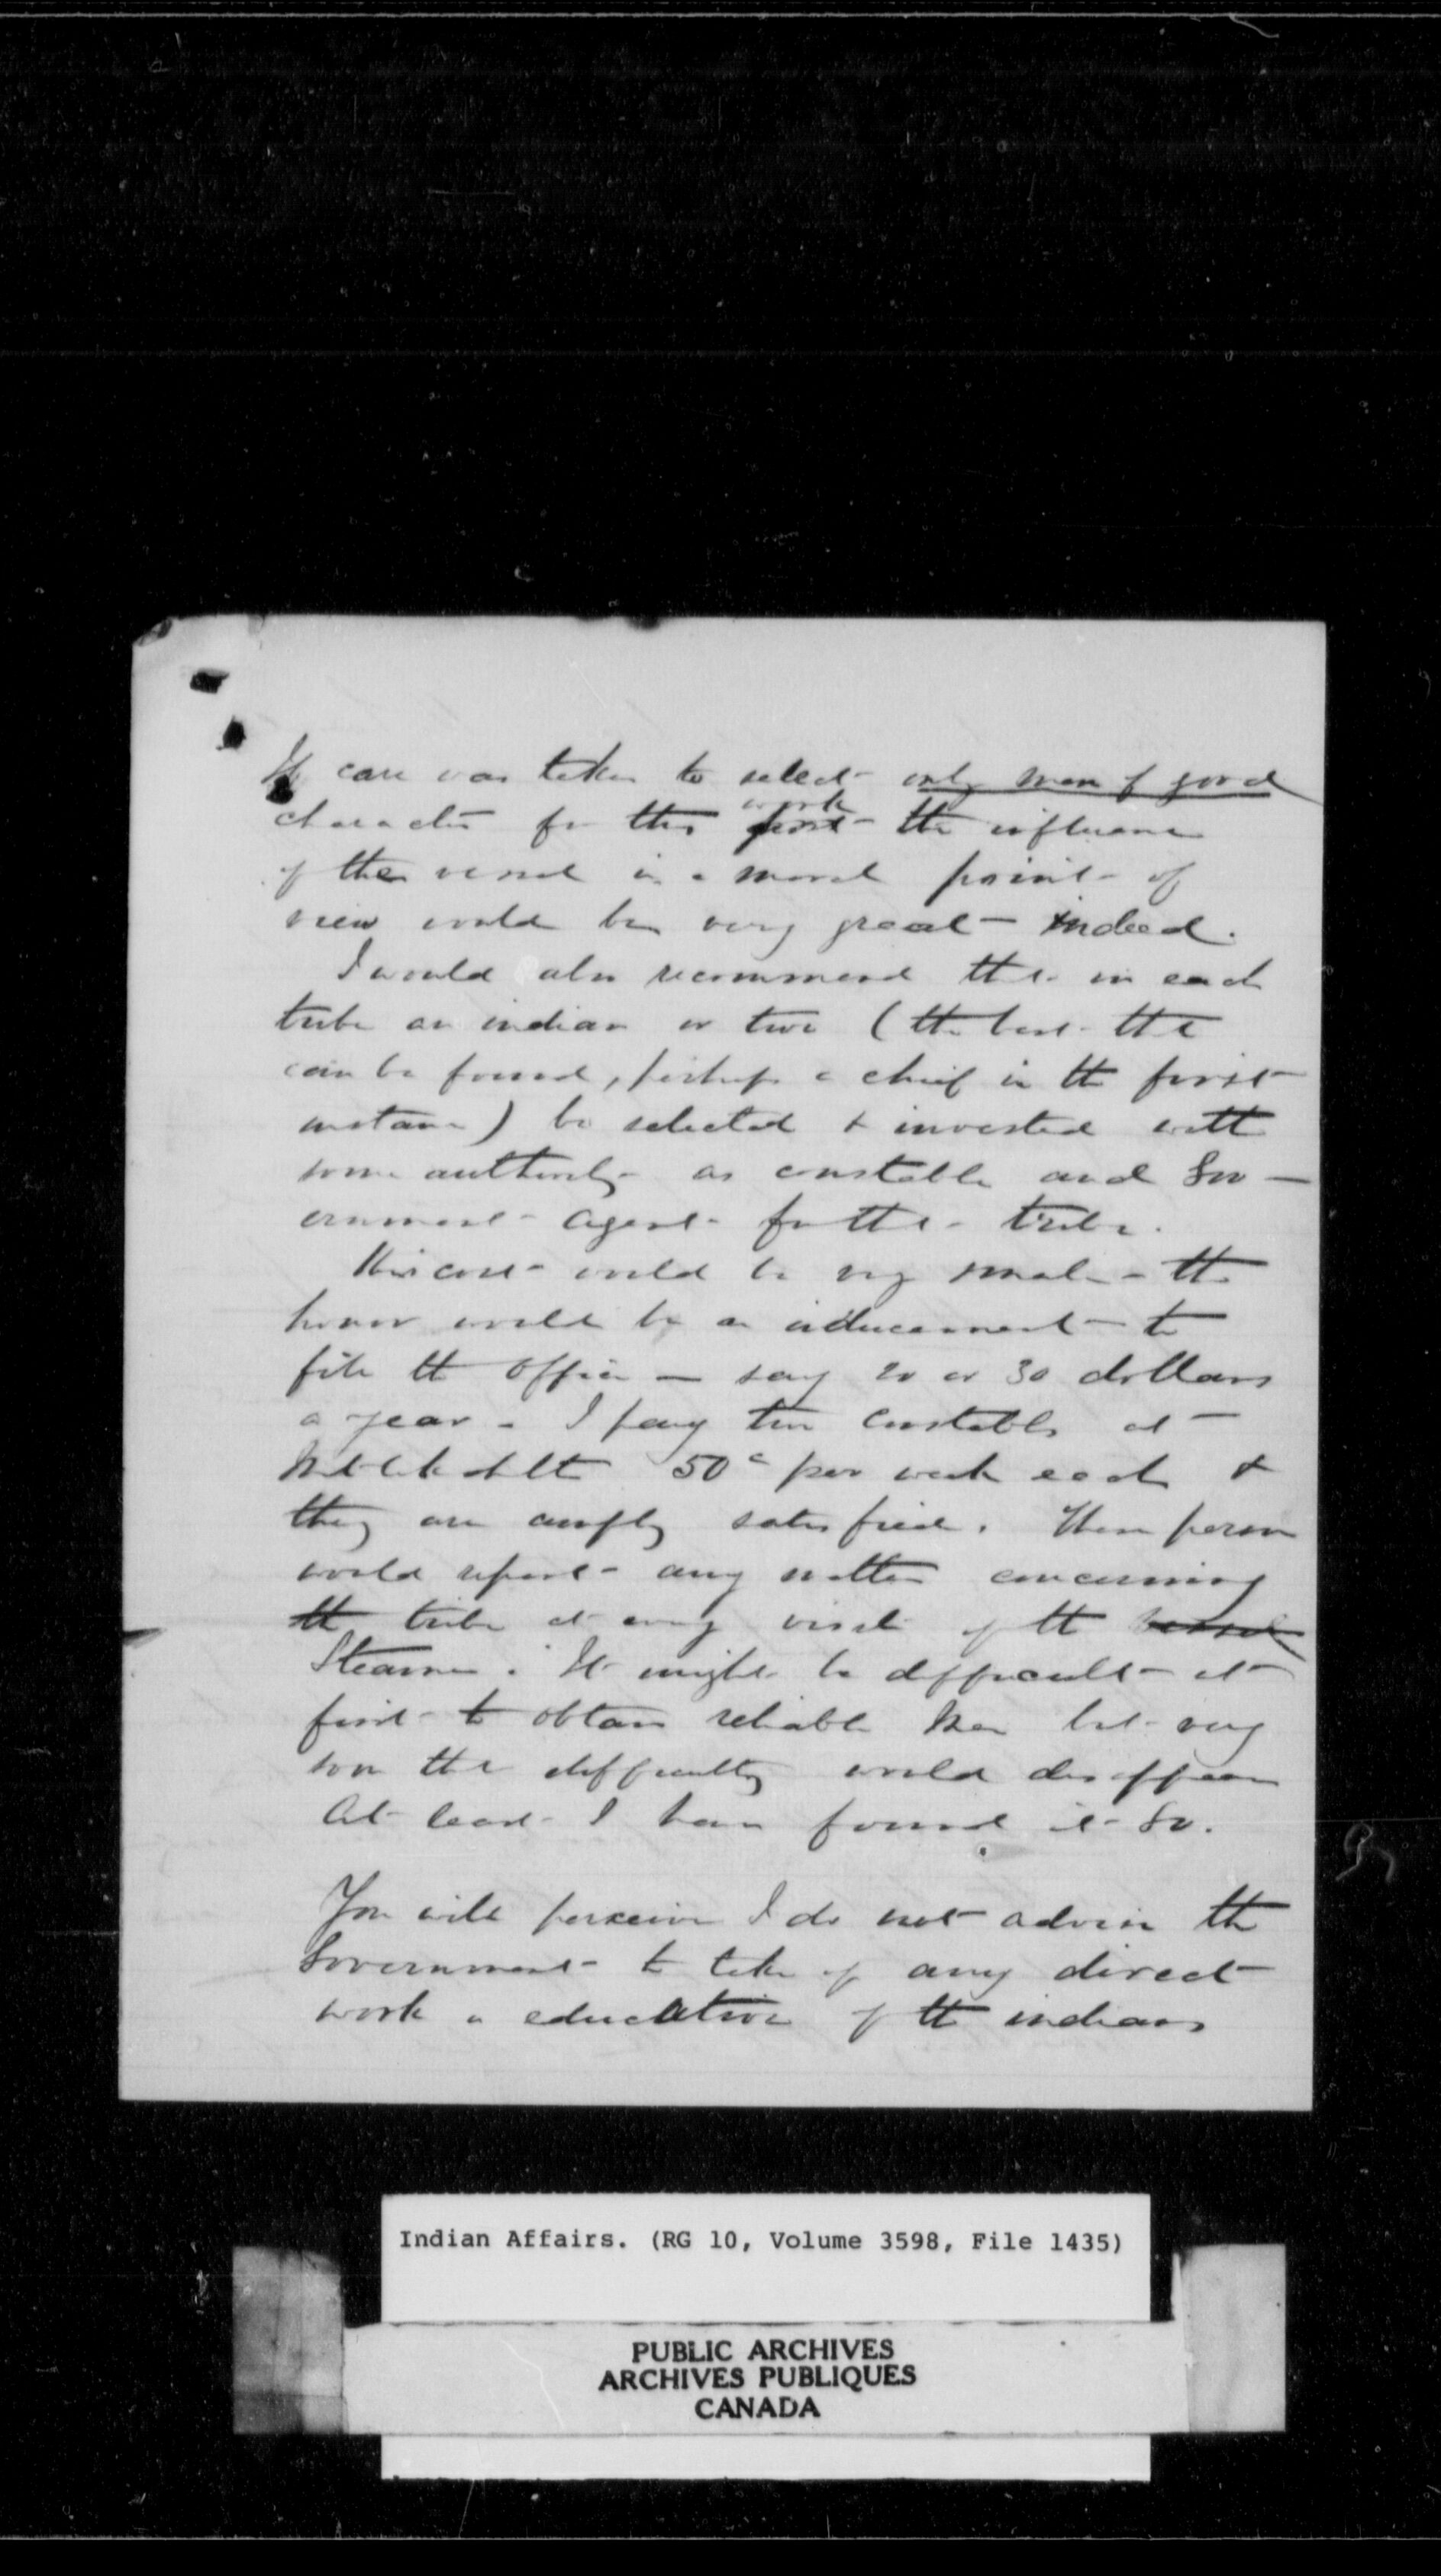 If care was taken to select only men of good
character for this work post the influence
of the vessel in a moral point of
view would be very great indeed.
I would also recommend that in each
tribe an indian or two (the best that
can be found, perhaps a chief in the first
instance) be selected & invested with
some authority as constable and Gov-
ernment agent for that tribe.
His cost would be very small - the
honor would be an inducement to
fill the office — say 20 or 30 dollars
a year - I pay ten constables at
Metlakatlah 50c per week each &
they are amply satisfied. These persons
would report any matter concerning
the tribe at every visit of the vessel
Steamer. It might be difficult at
first to obtain reliable men but very
soon the difficulty would disappear
At least I have found it so.
You will perceive I do not advise the
Government to take up any direct
work in education of the indians
Indian Affairs. (RG 10, Volume 3598, File 1435)
PUBLIC ARCHIVES
ARCHIVES PUBLIQUES
CANADA